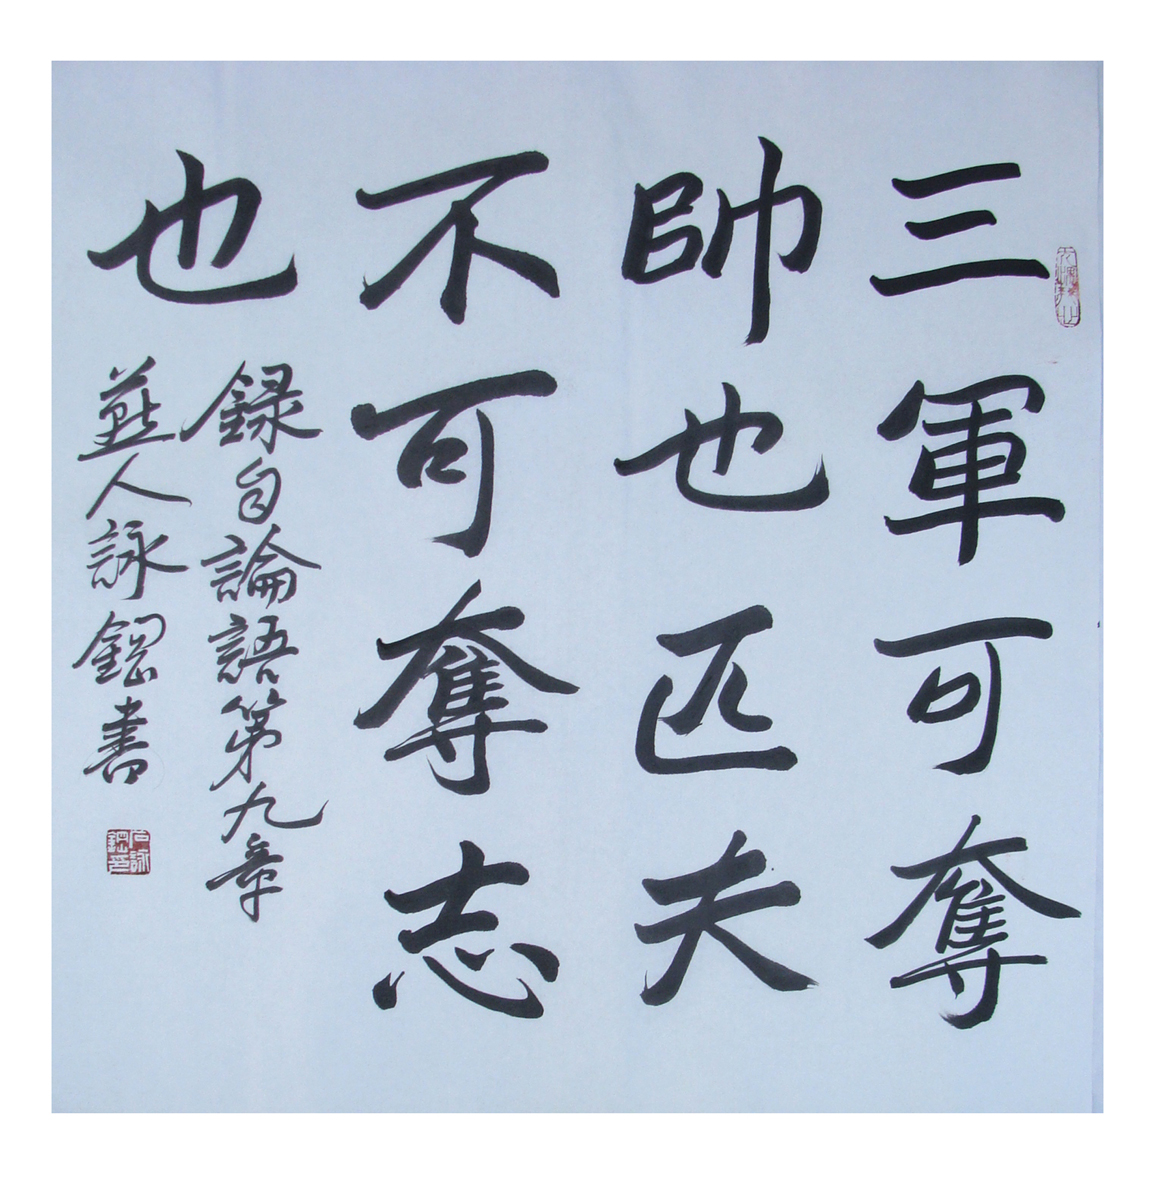 三軍可奪
帥也匹夫
不可奪志
也
録自論語第九章
燕人詠鋼書